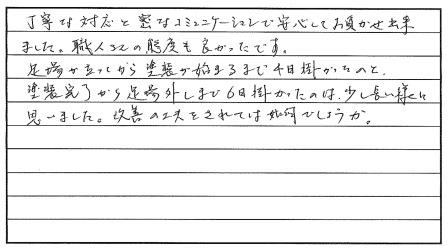 丁寧な対応と密なコミュニケーションで安心してお負かせ出来
ました。職人さんの態度も良かったです。
足場が立ってから塗装が始まるまで4日掛かったのと、
塗装完了から足場外しまで6日掛かったのは、少し長い様に
思いました。改善の工夫をされては如何でしょうか。